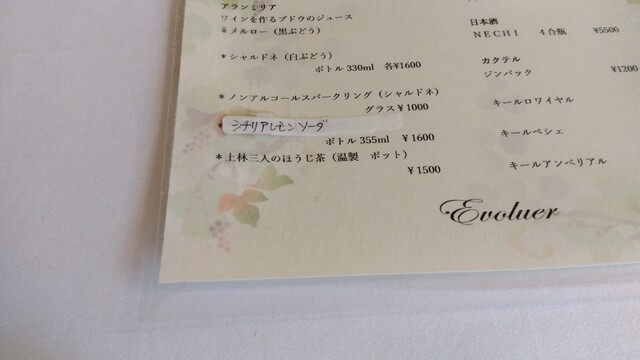 アランミリア
ワインを作るブドウのジュース
＊メルロー（黒ぶどう）
＊シャルドネ（白ぶどう）
ボトル 330ml 各¥1600
＊ノンアルコールスパークリング（シャルドネ）
グラス ¥ 1000
＊シチリアレモンソーダ
ボトル 355ml ¥ 1600
＊上林三人のほうじ茶（温製 ポット）
¥ 1500
日本酒
NECHI 4合瓶 ¥5500
カクテル
ジンバック ¥1200
キールロワイヤル
キールペシェ
キールアンペリアル
Evoluer